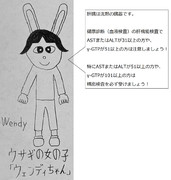 肝臓は沈黙の臓器です。
健康診断(血液検査)の肝機能検査で
ASTまたはALTが31以上の方や、
γ-GTPが51以上の方は注意しましょう!
特にASTまたはALTが51以上の方や、
γ-GTPが101以上の方は
精密検査を必ず受けましょう!
Wendy
ウサギの女の子
「ウェンディちゃん」